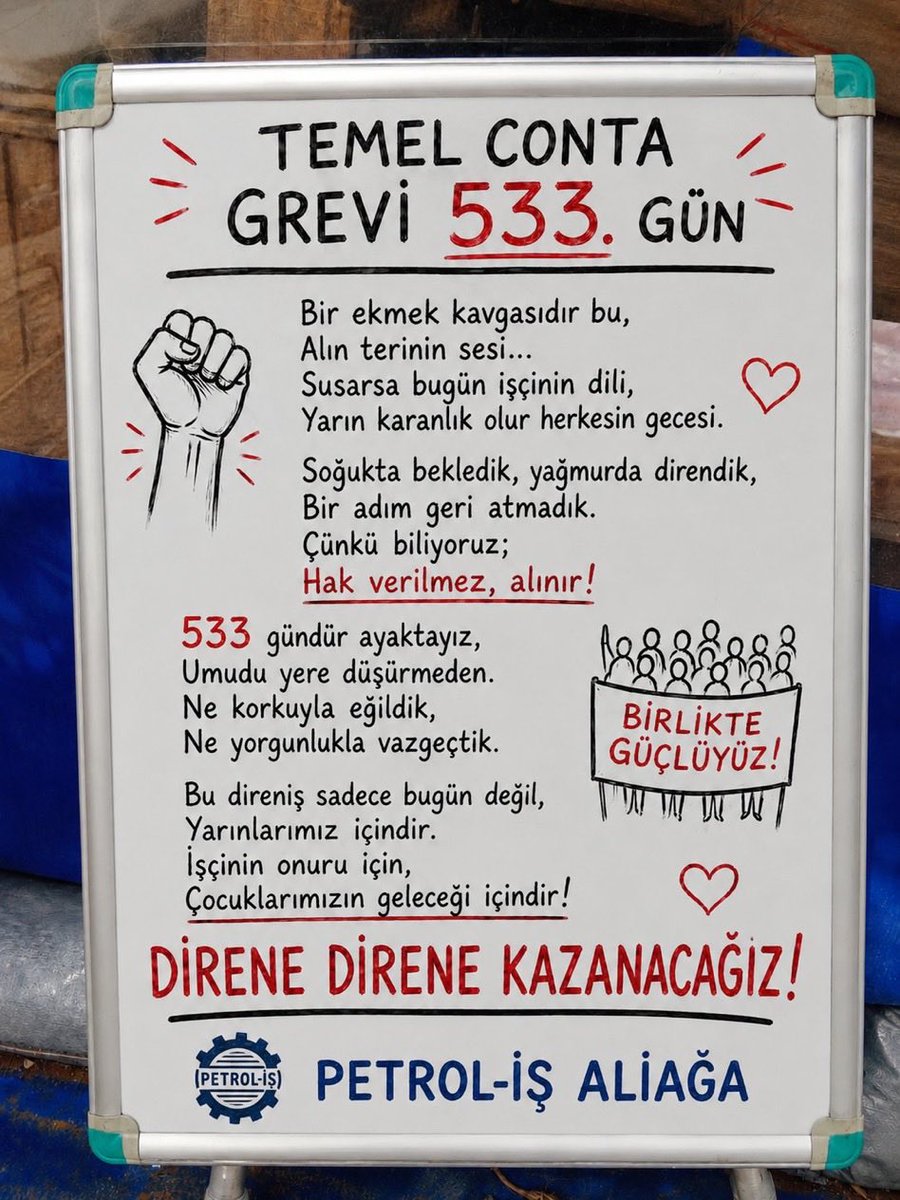 TEMEL CONTA
GREVİ 533. GÜN
Bir ekmek kavgasıdır bu,
Alın terinin sesi...
Susarsa bugün işçinin dili,
Yarın karanlık olur herkesin gecesi.
Soğukta bekledik, yağmurda direndik,
Bir adım geri atmadık.
Çünkü biliyoruz;
Hak verilmez, alınır!
533 gündür ayaktayız,
Umudu yere düşürmeden.
Ne korkuyla eğildik,
Ne yorgunlukla vazgeçtik.
BİRLİKTE
GÜÇLÜYÜZ!
Bu direniş sadece bugün değil,
Yarınlarımız içindir.
İşçinin onuru için,
Çocuklarımızın geleceği içindir!
DİRENE DİRENE KAZANACAĞIZ!
PETROL-İŞ
PETROL-İŞ ALİAĞA